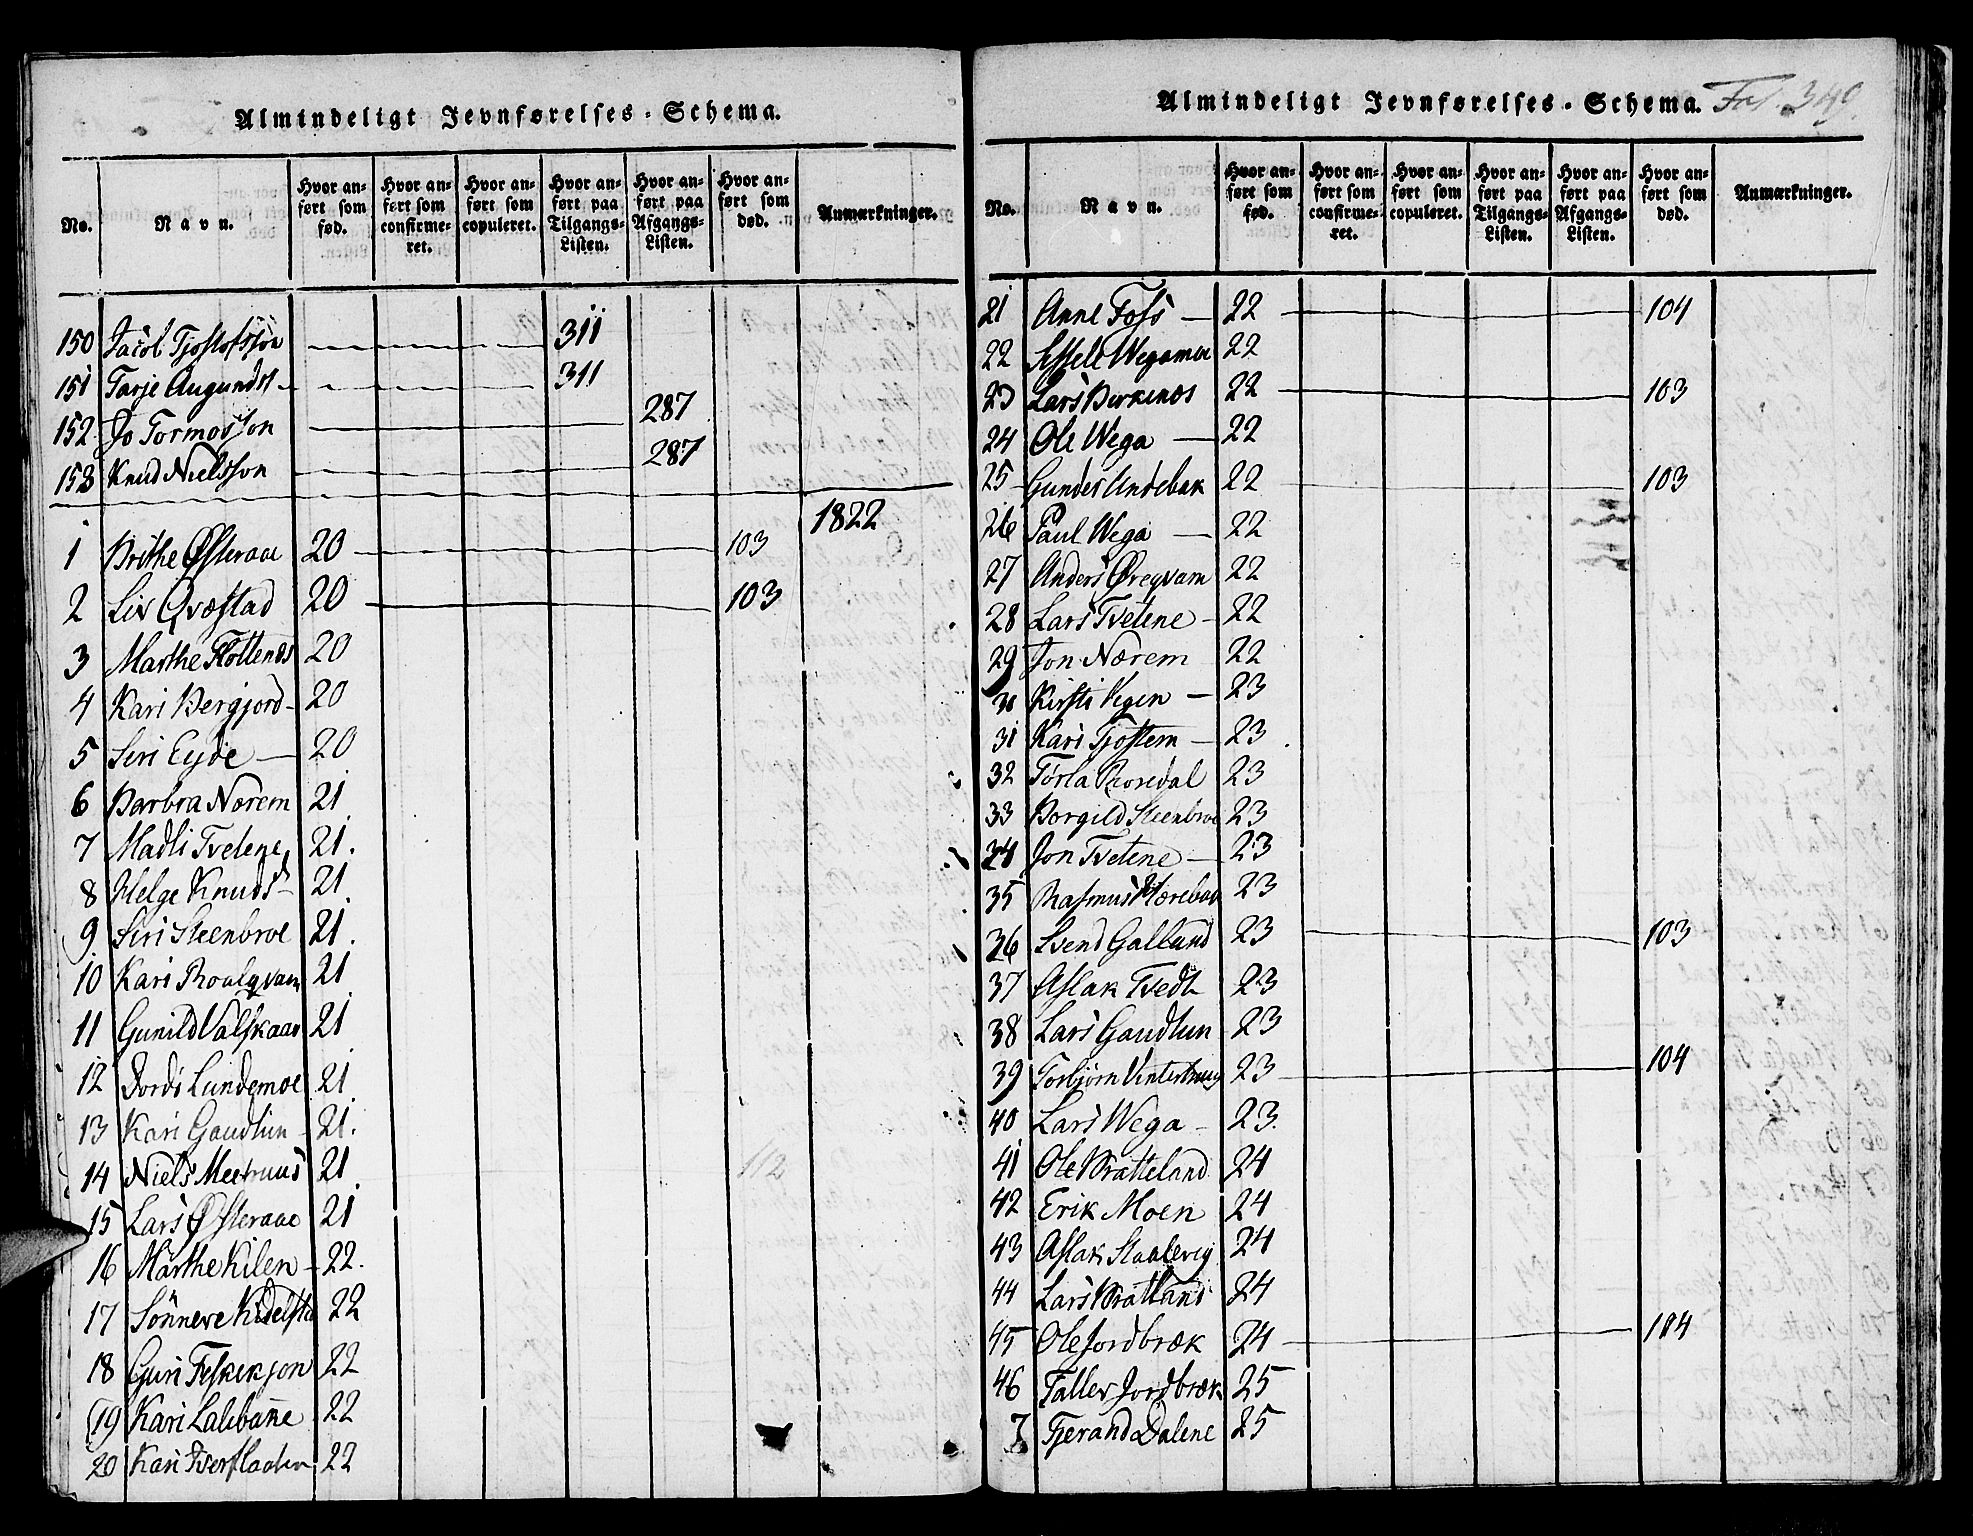 Almindeligt Jevnførelses-Schema.
No. | Navn. | Hvor anført som fød. | Hvor anført som confirmeret. | Hvor anført som copuleret. | Hvor anført paa Tilgangs-Listen. | Hvor anført paa Afgangs-Listen. | Hvor anført som død. | Anmærkninger.
150 Jacob Tjostofssøn 311
151 Tarje Augunds 311
152 Jo Tormodsson 287
153 Knud Nielsson 287
1822
1 Brithe Østeraae 20 103
2 Liv Qvæstad 20 103
3 Marthe Flottenes 20
4 Kari Bergjord 20
5 Siri Eyde 20
6 Barbra Nærem 21
7 Madli Tvetene 21.
8 Helge Knuds 21
9 Siri Steenbroe 21.
10 Kari Roalqvam 21
11 Gunild Valskaar 21
12 Dordi Lundemoe 21
13 Kari Gaudlun 21.
14 Niels 21 112
15 Lars Østeraae 21
16 Marthe Kilen 22.
17 Sønneve 22
18 Guri 22
19 Kari 22
20 Kari 22
Almindeligt Jevnførelses-Schema. Fol. 349.
No. | Navn. | Hvor anført som fød. | Hvor anført som confirmeret. | Hvor anført som copuleret. | Hvor anført paa Tilgangs-Listen. | Hvor anført paa Afgangs-Listen. | Hvor anført som død. | Anmærkninger.
21 Anne Foss 22 104
22 Sissele Wegamoe 22
23 Lars Birkenes 22 103
24 Ole Wega 22
25 Gunder Andebak 22 103
26 Paul Wega 22
27 Anders Øregvam 22
28 Lars Tvetene 22
29 Jon Nærem 22
30 Kirsti Vegen 23
31 Kari Tjostem 23
32 Torla Roredal 23
33 Borgild Steenbroe 23
34 Jon Tvetene 23
35 Rasmus 23
36 Svend Galland 23 103
37 Aslak Tvedt 23
38 Lars Gaudlun 23
39 Torbjørn 23 104
40 Lars Wega 23.
41 Ole Bratteland 24
42 Erik Moen 24
43 Aslak 24
44 Lars Bratland 24
45 Ole Jordbræk 24 104
46 Taller Jordbræk 25
7 Tjerand Dalene 25